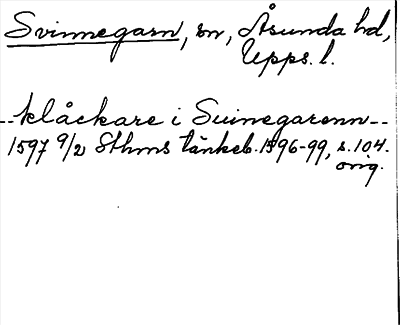 Svinnegarn, sn, Åsunda hd,
Upps. l.
--klåckare i Suinegarenn--
1597 9/2 Sthms tänkeb. 1596-99, s. 104.
orig.